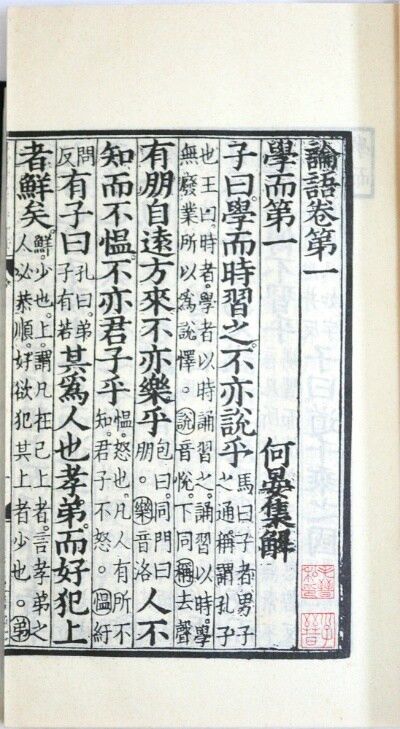 論語卷第一
學而第一 何晏集解
毛晉私印
子晉
子曰。學而時習之。不亦說乎
馬曰子者男子
之通稱謂孔子
也王曰。時者。學者以時誦習之。誦習以時。學
無廢業。所以爲說懌。說音悅。下同。稱去聲
有朋自遠方來不亦樂乎
包曰。同門曰
朋。樂音洛
人不
知而不慍。不亦君子乎
慍。怒也。凡人有所不
知。君子不怒。慍紆
問
反
有子曰
孔曰。弟
子有若
其爲人也孝弟。而好犯上
者鮮矣。
鮮。少也。上。謂凡在己上者。言孝弟之
人必恭順。好欲犯其上者少也。弟